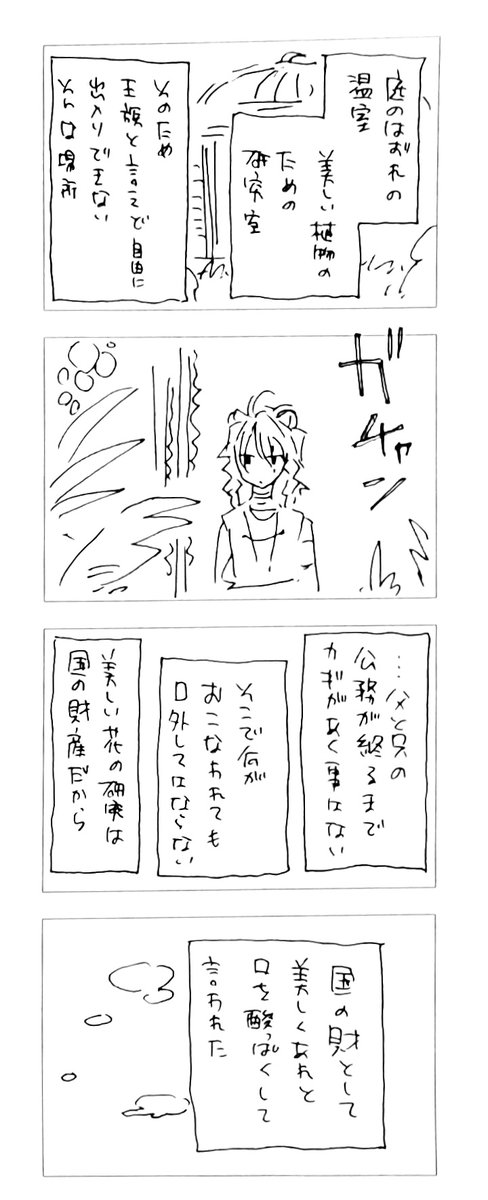 庭のはずれの
温室
美しい植物の
ための
研究室
そのため
王族と言えど自由に
出入りできない
そんな場所
ガチャン
…父と兄の
公務が終るまで
カギがあく事はない
そこで何が
おこなわれても
口外してはならない
美しい花の研究は
国の財産だから
国の財として
美しくあれと
口を酸っぱくして
言われた